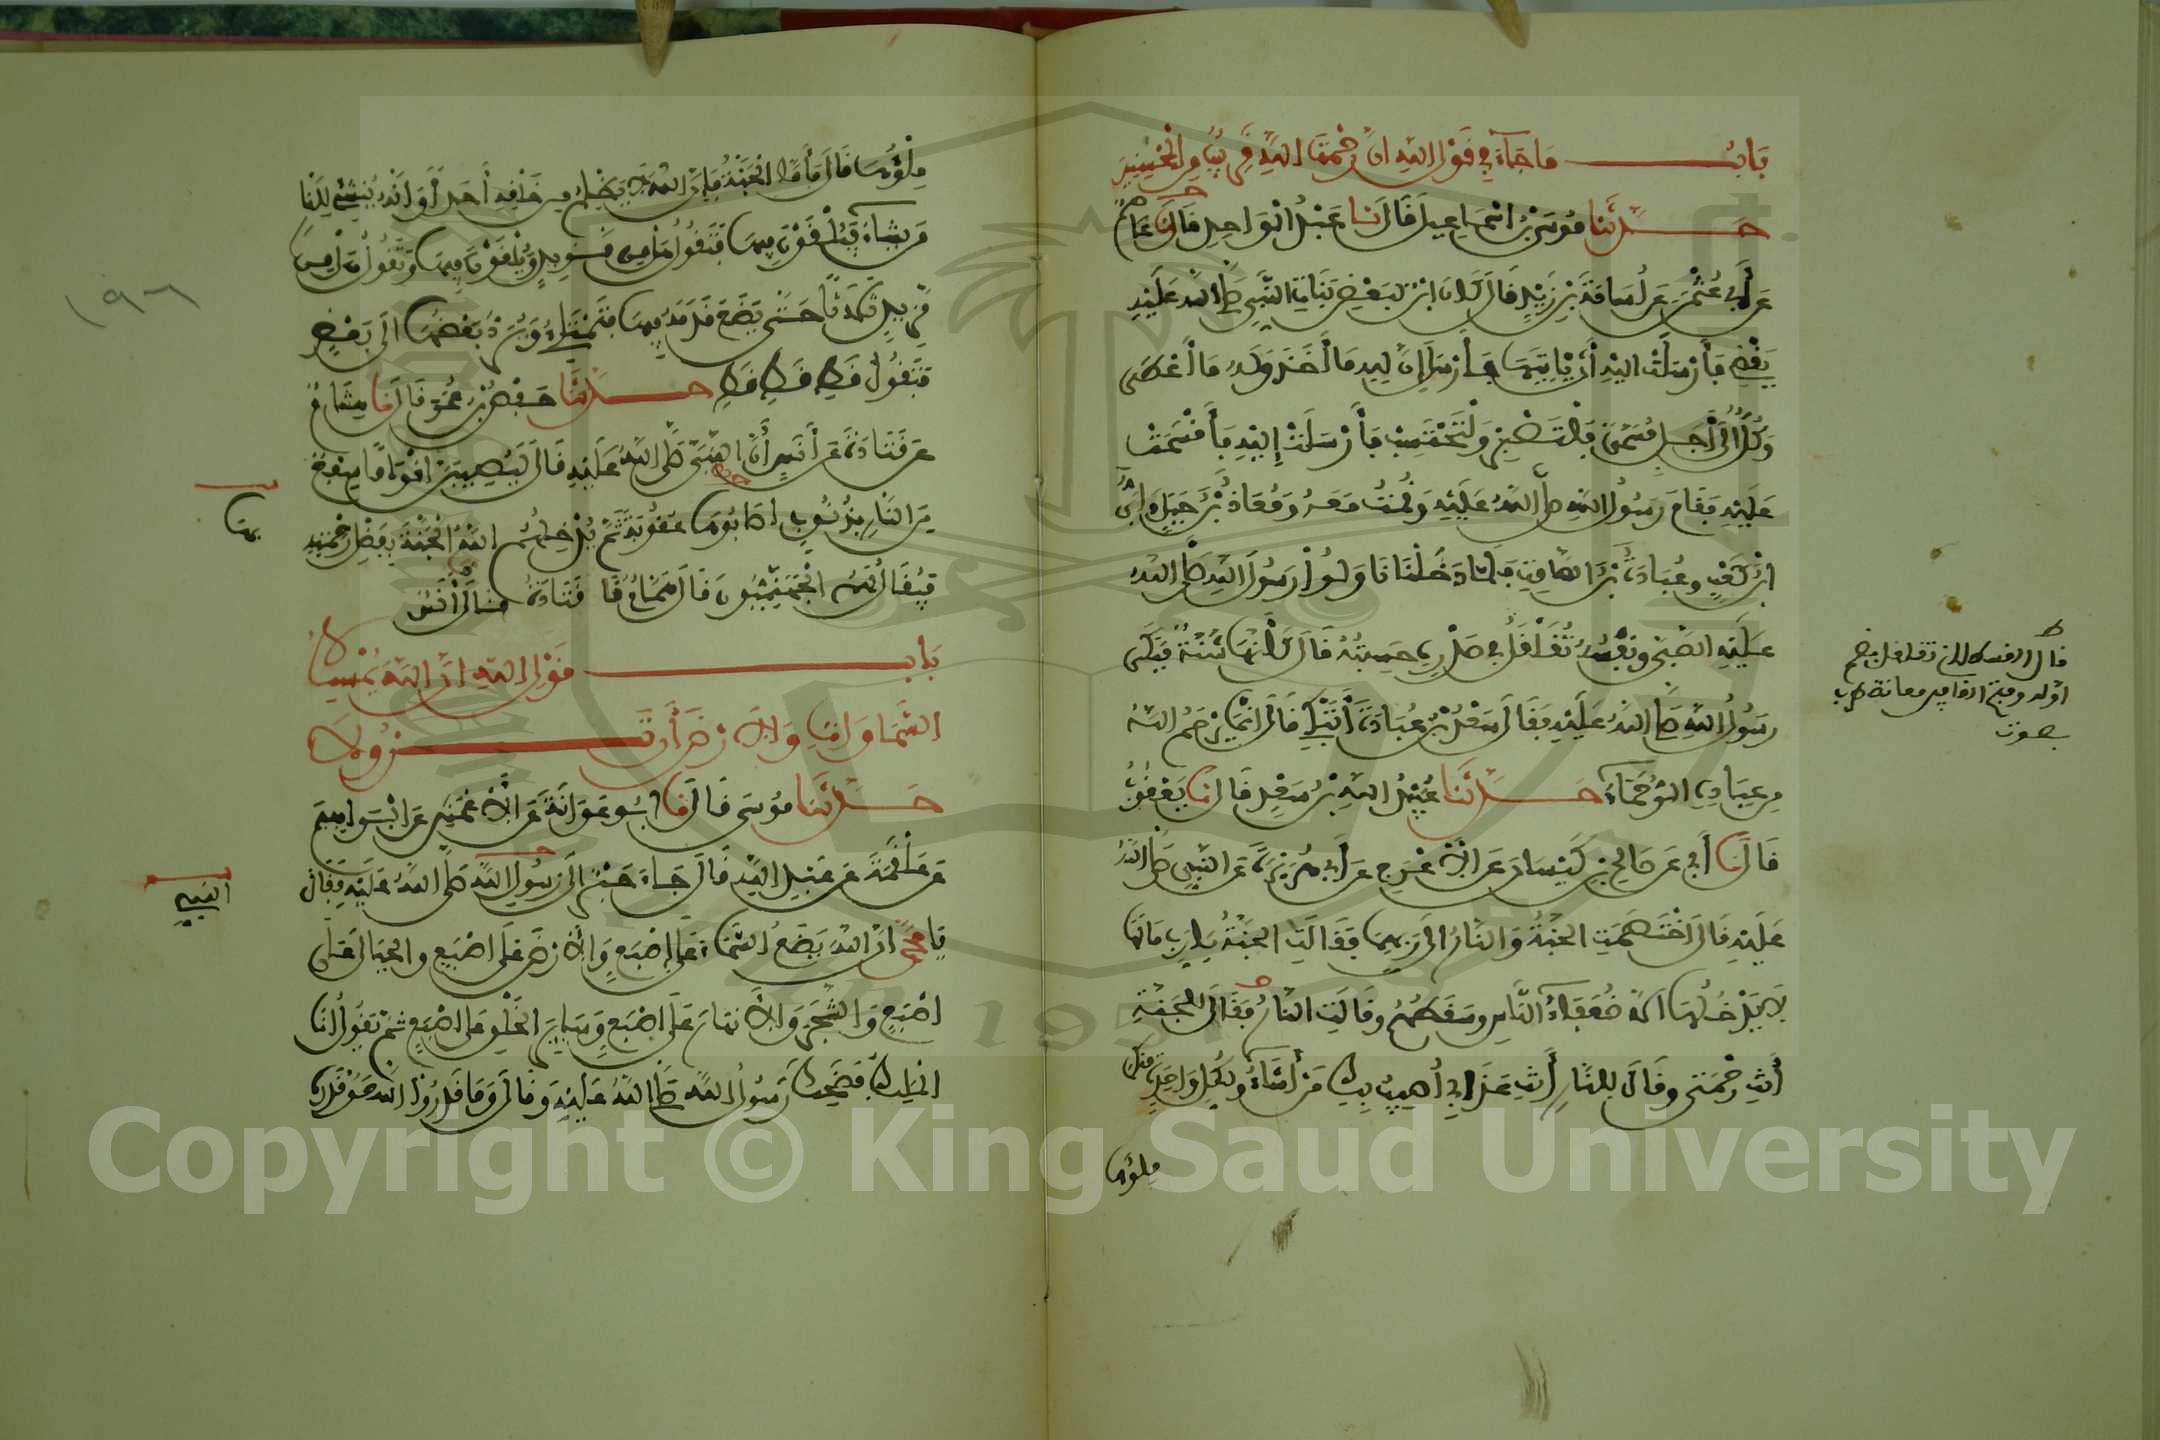 باب ما جاء في قول الله ان رحمة الله قريب من المحسنين
حدثنا موسى بن اسماعيل قال نا عبد الواحد قال نا عاصم
عن أبي عثمن عن اسامة بن زيد قال كان ابن لبعض بنات النبي صلى الله عليه
يقضي فأرسلت اليه أن ياتيها فأرسل إن لله ما أخذ وله ما أعطى
وكل الى أجل مسمى فلتصبر ولتحتسب فأرسلت إليه فأقسمت
عليه فقام رسول الله صلى الله عليه وقمت معه ومعاذ بن جبل وابي
ابن كعب وعبادة بن الصامت فلما دخلنا ناولوا رسول الله صلى الله
عليه الصبي ونفسه تقلقل في صدره حسبته قال كأنها شنة فبكى
رسول الله صلى الله عليه فقال سعد بن عبادة أتبكي قال انما يرحم الله
من عباده الرحماء حدثنا عبيد الله بن سعد قال نا يعقوب
قال نا أبي عن صالح بن كيسان عن الاعرج عن أبي هريرة عن النبي صلى الله
عليه قال اختصمت الجنة والنار الى ربهما فقالت الجنة يا رب ما لها
لا يدخلها الا ضعفاء الناس وسقطهم وقالت النار فقال للجنة
أنت رحمتي وقال للنار أنت عذابي أصيب بك من أشاء ولكل واحدة منكما
ملؤها
قال
بصوت
١٩٦
ملؤها قال فأما الجنة فان الله لا يظلم من خلقه أحدا وانه ينشئ للنار
من يشاء فيلقون فيها فتقول هل من مزيد ويلقون فيها وتقول هل من
مزيد ثلاثا حتى يضع قدمه فيها فتمتلئ ويرد بعضها الى بعض
وتقول قط قط قط حدثنا حفص بن عمر قال نا هشام
عن قتادة عن أنس أن النبي صلى الله عليه قال ليصيبن اقواما سفع
من النار بذنوب اصابوها عقوبة ثم يدخلهم الله الجنة بفضل رحمته
فيقال لهم الجهنميون وقال همام نا قتادة نا أنس
باب قول الله ان الله يمسك
السماوات والارض أن تزولا
حدثنا موسى قال نا ابو عوانة عن الاعمش عن ابراهيم
عن علقمة عن عبد الله قال جاء حبر الى رسول الله صلى الله عليه فقال
النبي
يا محمد ان الله يضع السماء على اصبع والارض على اصبع والجبال على
اصبع والشجر والانهار على اصبع وساير الخلق على اصبع ثم يقول أنا
الملك فضحك رسول الله صلى الله عليه وقال وما قدروا الله حق قدره